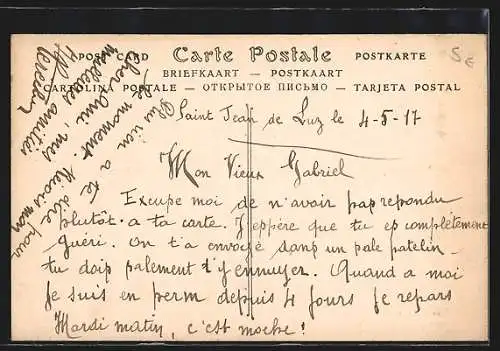 POST CARD Carte Postale POSTKARTE
BRIEFKAART — POSTKAART
CARTOLINA POSTALE — ОТКРЫТОЕ ПИСЬМО — TARJETA POSTAL
5 €
Saint Jean de Luz le 4-5-17
Mon Vieux Gabriel
Excuse moi de n'avoir pas repondu
plutôt a ta carte. J'espère que tu es complètement
guéri. On t'a envoyé dans un sale patelin
tu dois salement t'y ennuyer. Quand a moi
je suis en perm depuis 4 jours je repars
Mardi matin, c'est moche!
Plus rien a te dire pour
le moment. Reçois mon
cher Ami, mes
meilleures amitiés